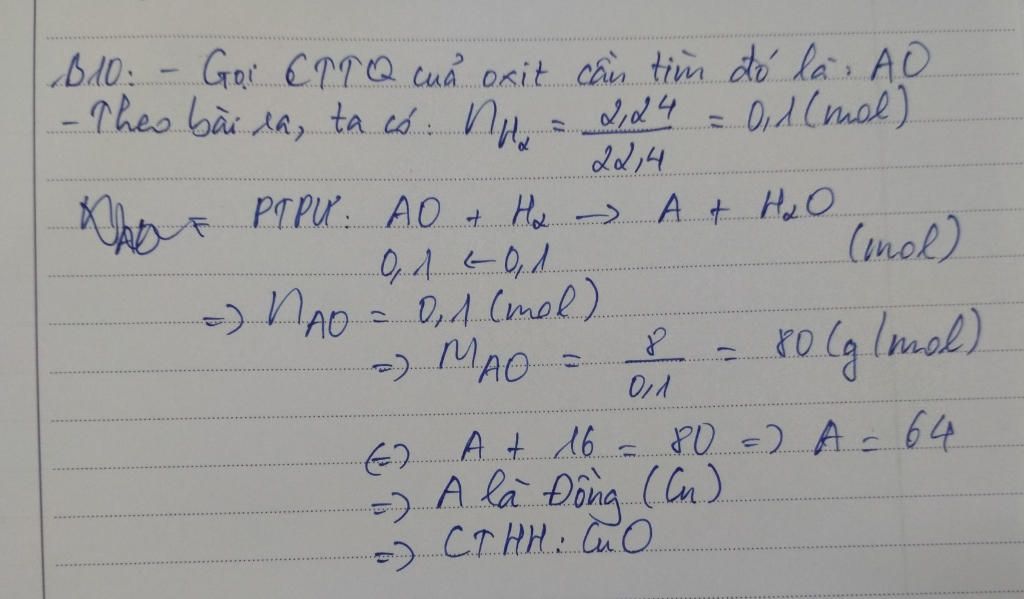 B10: - Gọi CTTQ cuả oxit cần tìm đó là: AO
- Theo bài ra, ta có: n_H₂ = 2,24/22,4 = 0,1 (mol)
PTPƯ: AO + H₂ → A + H₂O
0,1 ← 0,1 (mol)
=> n_AO = 0,1 (mol)
=> M_AO = 8/0,1 = 80 (g/mol)
<=> A + 16 = 80 => A = 64
=> A là Đồng (Cu)
=> CTHH: CuO